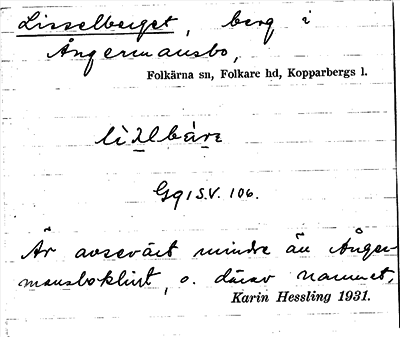 Lisselberget, berg i
Ångermansbo,
Folkärna sn, Folkare hd, Kopparbergs l.
Gq 1 S.V. 106.
Är avsevärt mindre än Ånger-
mansboklint, o. därav namnet.
Karin Hessling 1931.